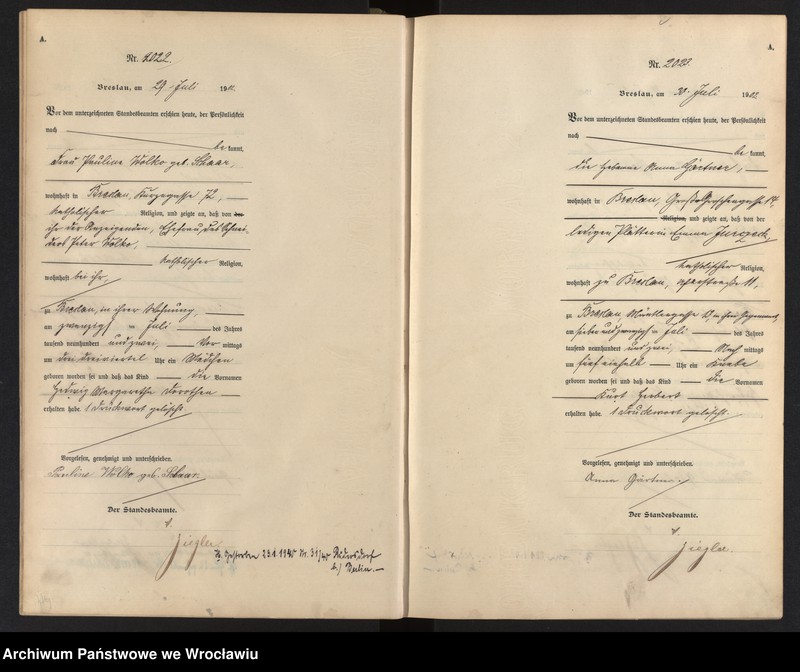 A.
Nr. 2022.
Breslau, am 29. Juli 1902.
Vor dem unterzeichneten Standesbeamten erschien heute, der Persönlichkeit
nach
be kannt,
Frau Pauline Wolko geb. Schaar,
wohnhaft in Breslau, Kurzegasse 72,
katholischer Religion, und zeigte an, daß von der
ihr der Anzeigenden, Ehefrau des Schnei-
ders Peter Wolko,
katholischer Religion,
wohnhaft bei ihr,
zu Breslau, in ihrer Wohnung,
am zwanzigsten Juli des Jahres
tausend neunhundert und zwei, Vor mittags
um drei viertel Uhr ein Mädchen
geboren worden sei und daß das Kind die Vornamen
Hedwig Margarethe Dorothea
erhalten habe. 1 Druckwort gelöscht.
Vorgelesen, genehmigt und unterschrieben.
Pauline Wolko geb. Schaar.
Der Standesbeamte.
Ziegler.
Gestorben 23.1.1945 Nr. 31/45 Rüdersdorf
b/ Berlin.
A.
Nr. 2023.
Breslau, am 30. Juli 1902.
Vor dem unterzeichneten Standesbeamten erschien heute, der Persönlichkeit
nach
be kannt,
die Hebamme Anna Gärtner,
wohnhaft in Breslau, Große Groschengasse 14,
Religion, und zeigte an, daß von der
ledigen Plätterin Emma Jurczeck,
katholischer Religion,
wohnhaft zu Breslau, 11,
zu Breslau, in ihrer Gegenwart,
am sieben und zwanzigsten Juli des Jahres
tausend neunhundert und zwei, Nach mittags
um fünf einhalb Uhr ein Knabe
geboren worden sei und daß das Kind die Vornamen
Kurt Herbert
erhalten habe. 1 Druckwort gelöscht.
Vorgelesen, genehmigt und unterschrieben.
Anna Gärtner.
Der Standesbeamte.
Ziegler.
Archiwum Państwowe we Wrocławiu